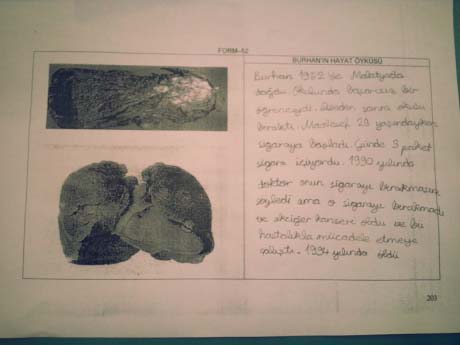 FORM-52
BURHAN'IN HAYAT ÖYKÜSÜ
Burhan 1952'de Malatyada
doğdu. Okulunda başarısız bir
öğrenciydi. Liseden sonra okulu
bıraktı. 29 yaşındayken
sigaraya başladı. Günde 3 paket
sigara içiyordu. 1990 yılında
doktor onun sigarayı bırakmasını
söyledi ama o sigarayı bırakmadı
ve akciğer kanseri oldu ve bu
hastalıkla mücadele etmeye
çalıştı. 1994 yılında öldü
203